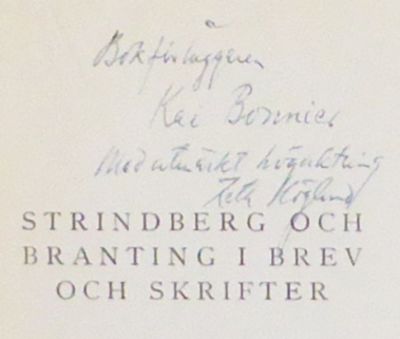 Bokförläggaren
Kaj Bonnier
Med utmärkt högaktning
Zeth Höglund
STRINDBERG OCH
BRANTING I BREV
OCH SKRIFTER